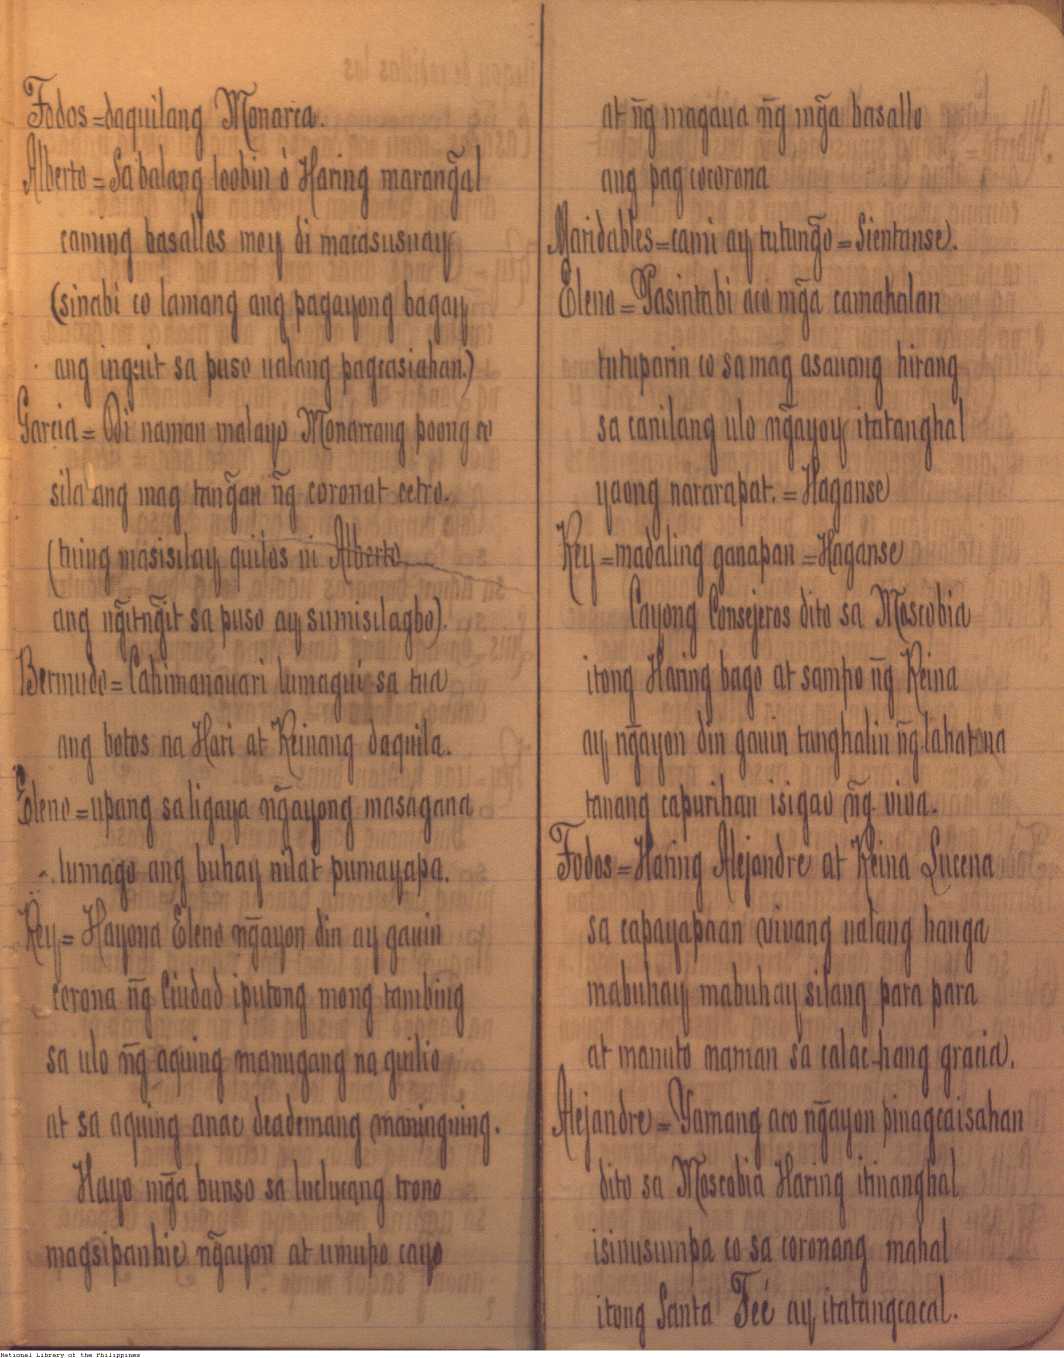 Todos = daquilang Monarca.
Alberto = Sa balang loobin ò Haring marang̃al
caming basallos moy di macasusuay
(sinabi co lamang ang pagayong bagay
ang inguit sa puso ualang pagcasiahan.)
Garcia = Di naman malayo Monarcang poong co
sila ang mag tang̃an ñg coronat cetro.
(tuing masisilay quilos ni Alberto
ang ng̃itng̃it sa puso ay sumisilagbo).
Bermudo = Cahimanauari lumagui sa tua
ang botos na Hari at Reinang daquila.
Eleno = upang sa ligaya ng̃ayong masagana
lumago ang buhay nilat pumayapa.
Rey = Hayona Eleno ng̃ayon din ay gauin
corona ñg Ciudad iputong mong tambing
sa ulo ñg aquing manugang na guilio
at sa aquing anac deademang maningning.
Hayo mg̃a bunso sa luclucang trono
magsipanhic ng̃ayon at umupo cayo
at ñg magaua ñg mg̃a basallo
ang pag cocorona
Maridables = cami ay tutung̃o = Sientanse).
Eleno = Pasintabi aco mg̃a camahalan
tutuparin co sa mag asauang hirang
sa canilang ulo ng̃ayoy itatanghal
yaong nararapat. = Haganse
Rey = madaling ganapan = Haganse
Cayong Consejeros dito sa Moscobia
itong Haring bago at sampo ñg Reina
ay ng̃ayon din gauin tanghalin ñg lahat na
tanang capurihan isigao ñg viva.
Todos = Haring Alejandre at Reina Lucena
sa capayapaan vivang ualang hanga
mabuhay mabuhay silang para para
at manuto naman sa calac-hang gracia).
Alejandre = Yamang aco ng̃ayon pinagcaisahan
dito sa Moscobia Haring itinanghal
isinusumpa co sa coronang mahal
itong Santa Feé ay itatangcacal.
National Library of the Philippines